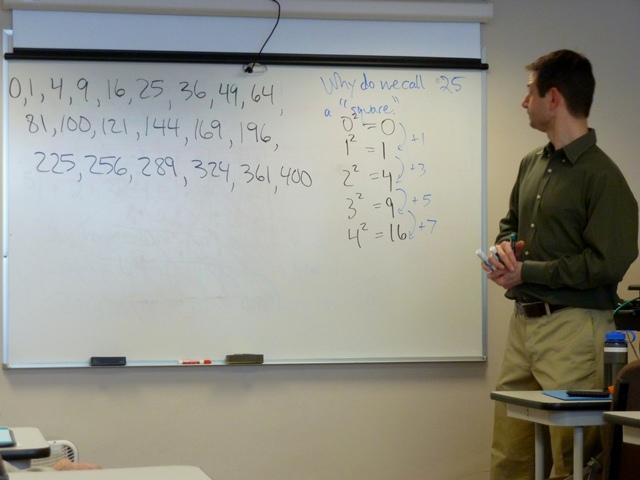 0,1, 4, 9, 16, 25, 36, 49, 64,
81, 100, 121, 144, 169, 196,
225, 256, 289, 324, 361, 400
Why do we call 25
a "square."
0² = 0
+1
1² = 1
+3
2² = 4
+5
3² = 9
+7
4² = 16